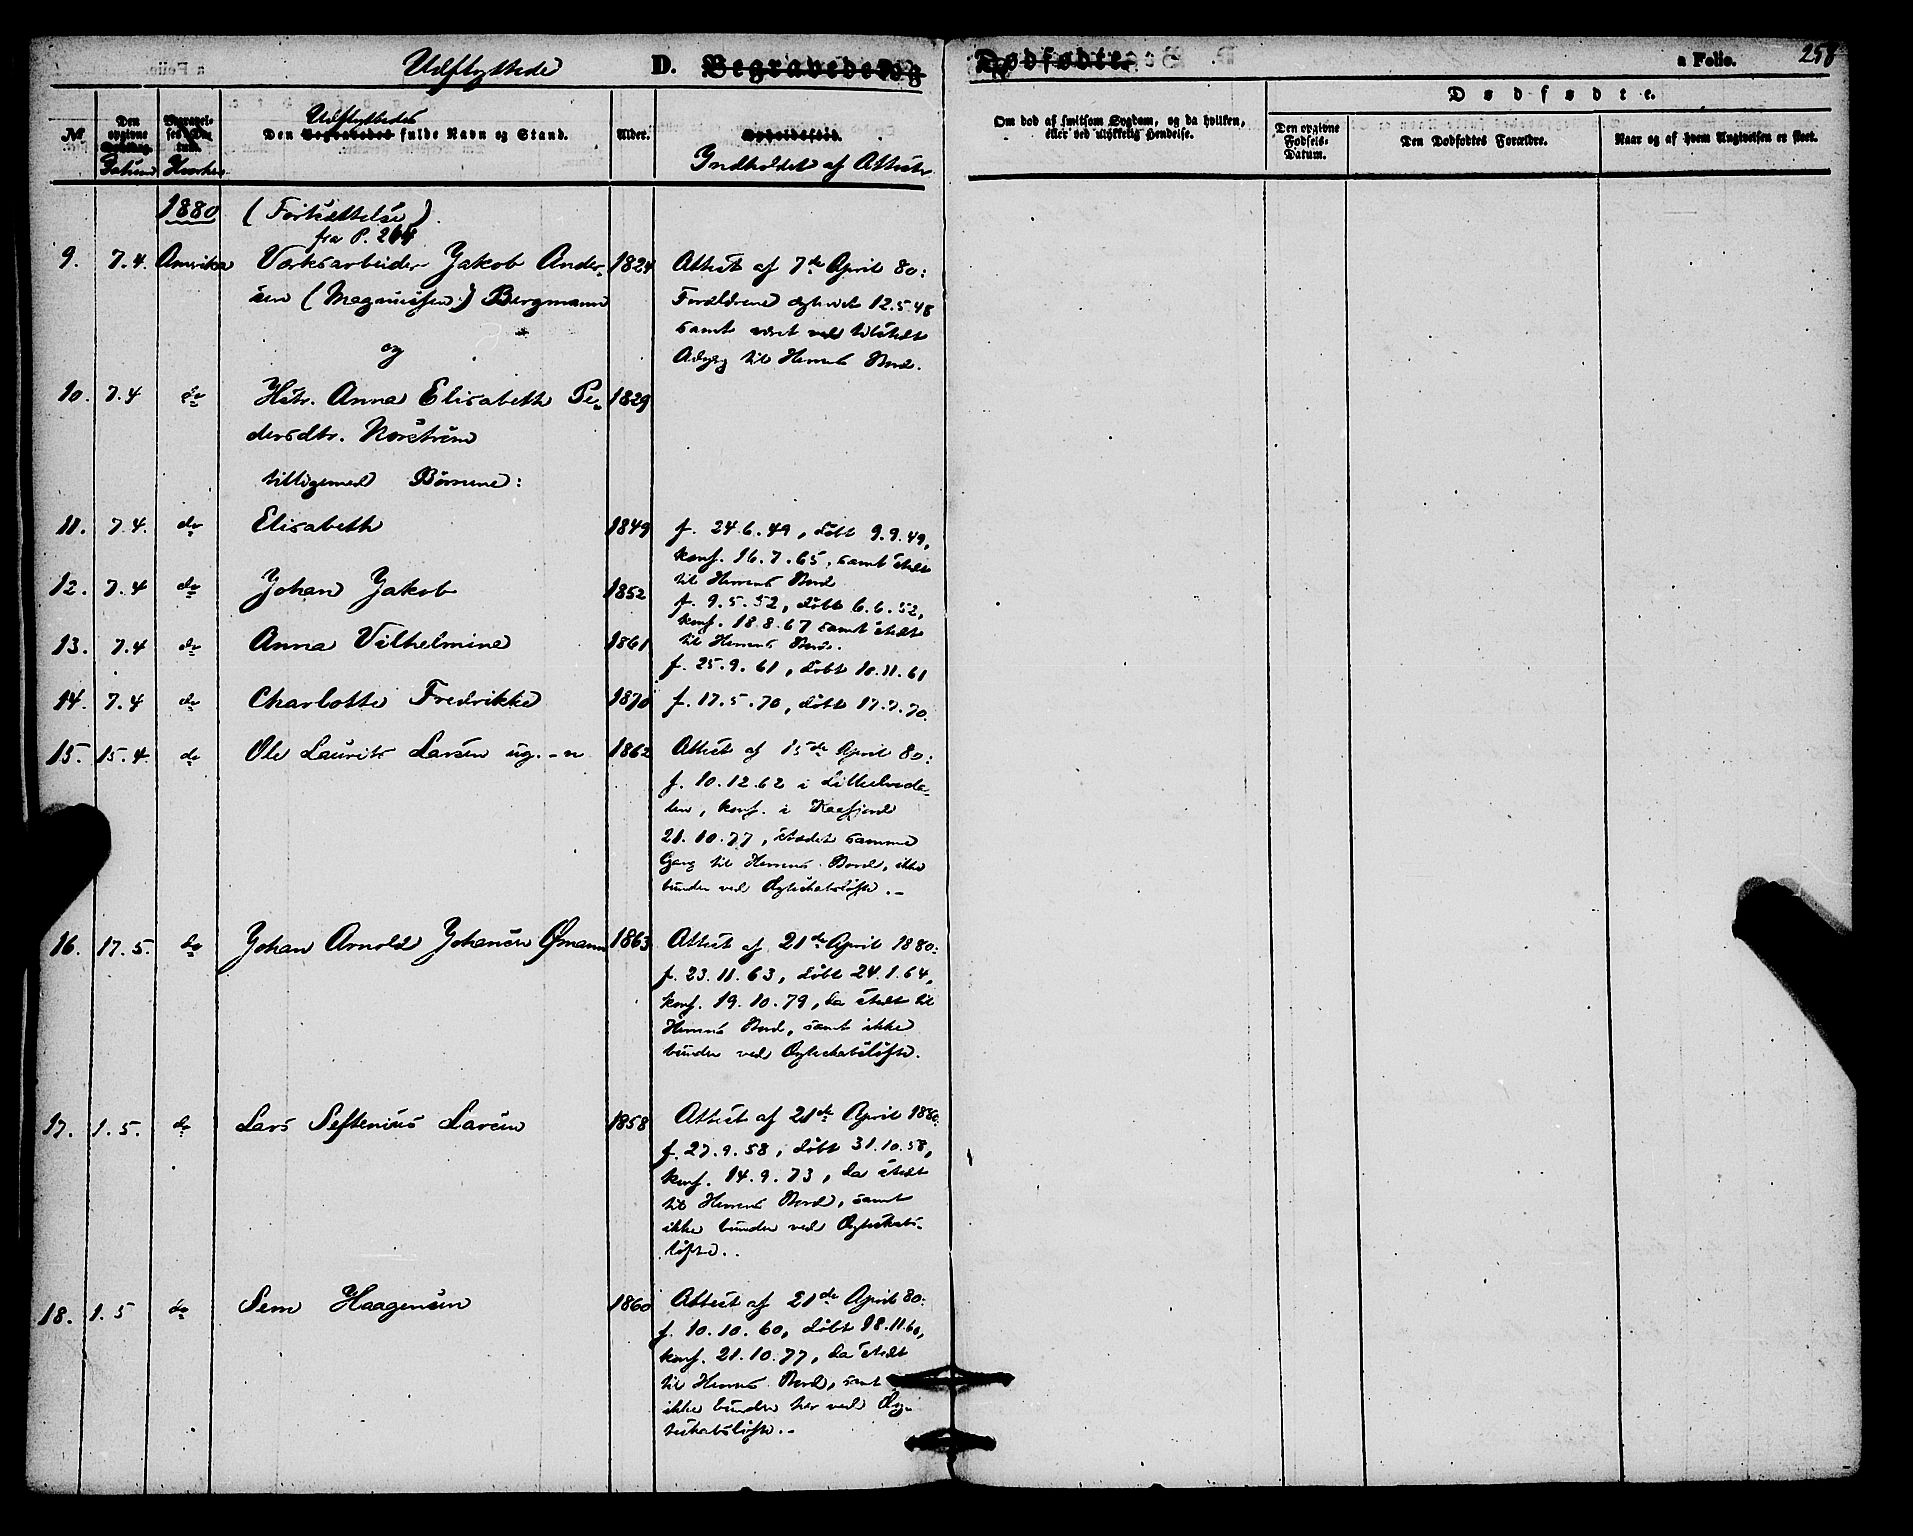 Udflyttede D. Begravede og Dødfødte. a Folio. 258
Dødfødte.
No. Den opgivne Dødsdag. Datum Begravelses-Datum. Hvorhen Udflyttedes Den Begravedes fulde Navn og Stand. Alder. Opholdssted. Indholdet af Attest Om død af smitsom Sygdom, og da hvilken, eller ved ulykkelig Hendelse. Den opgivne Fødsels-Datum. Den Dødfødtes Forældre. Naar og af hvem Angivelsen er skeet.
1880 (Fortsættelse)
fra P. 264
9. 7.4. Amerika Værksarbeider Jakob Ander- 1824 Attest af 7de April 80:
sen (Magnussen) Bergmann Forældrene ægteviet 12.5.48
samt været ved tilstedt
og Adgang til Herrens Bord.
10. 7.4 do Hstr. Anna Elisabeth Pe- 1829
dersdtr. Norström
tilligemed Børnene:
11. 7.4. do Elisabeth 1849 f. 24.6.49, døbt 9.9.49,
konf. 16.7.65, samt stedt
til Herrens Bord
12. 7.4 do Johan Jakob 1852 f. 9.5.52, døbt 6.6.52,
konf. 18.8.67 samt stedt
til Herrens Bord.
13. 7.4 do Anna Vilhelmine 1861 f. 25.9.61, døbt 10.11.61
14. 7.4 do Charlotte Fredrikke 1870 f. 17.5.70, døbt 17.7.70.
15. 15.4 do Ole Laurits Larsen ug.-n 1862 Attest af 15de April 80:
f. 10.12.62 i Lilleelveda-
len, konf. i Kaafjord
21.10.77, stædet samme
Gang til Herrens Bord, ikke
bunden ved Ægteskabsløfte.-
16. 17.5. do Johan Arnold Johansen Ømann 1863 Attest af 21de April 1880:
f. 23.11.63, døbt 24.1.64,
konf. 19.10.79, da stedt til
Herrens Bord, samt ikke
bunden ved Ægteskabsløfte.
17. 1.5. do Lars Seftenius Larsen 1858 Attest af 21de April 1880:
f. 27.9.58, døbt 31.10.58,
konf. 14.9.73, da stedt
til Herrens Bord, samt
ikke bunden ved Ægteskabs-
løfte..
18. 1.5 do Sem Haagensen 1860 Attest af 21de April 80:
f. 10.10.60, døbt 18.11.60,
konf. 21.10.77, da stedt
til Herrens Bord, samt
ikke bunden her ved Æg-
teskabsløfte.-